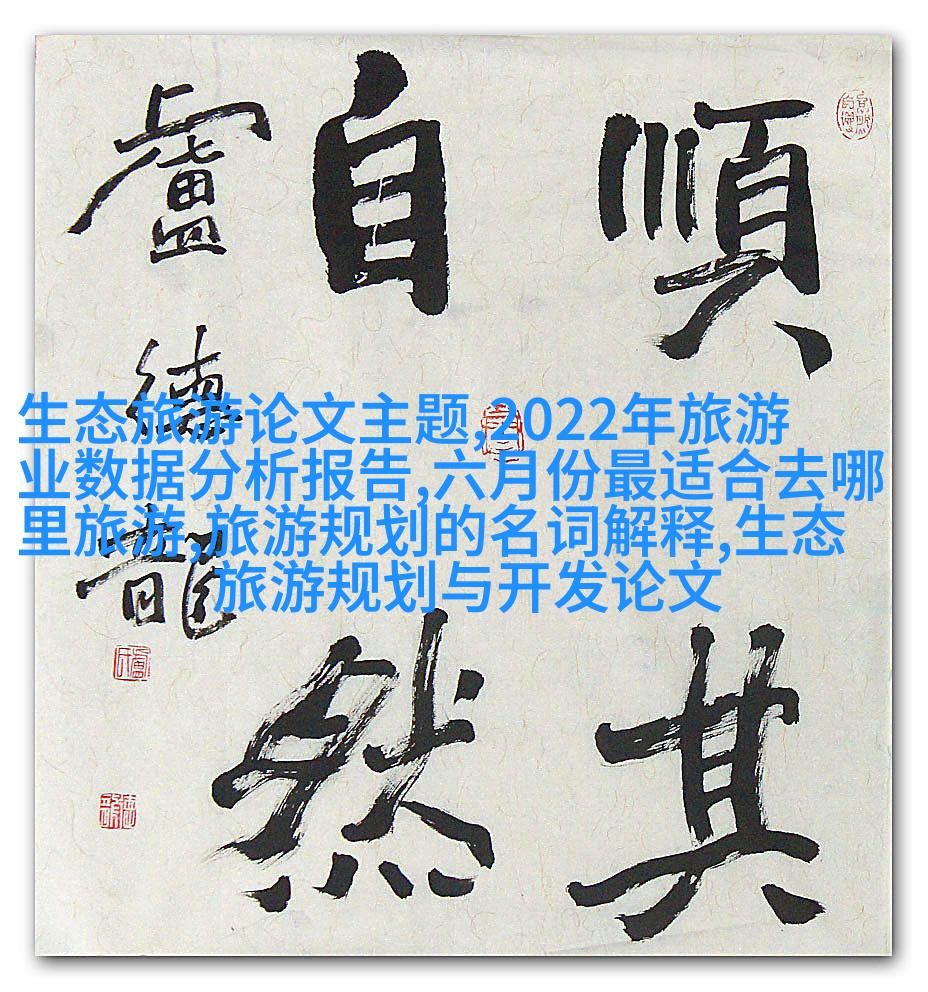 順其
自然
盧德龍
生态旅游论文主题,2022年旅游
业数据分析报告,六月份最适合去哪
里旅游,旅游规划的名词解释,生态
旅游规划与开发论文